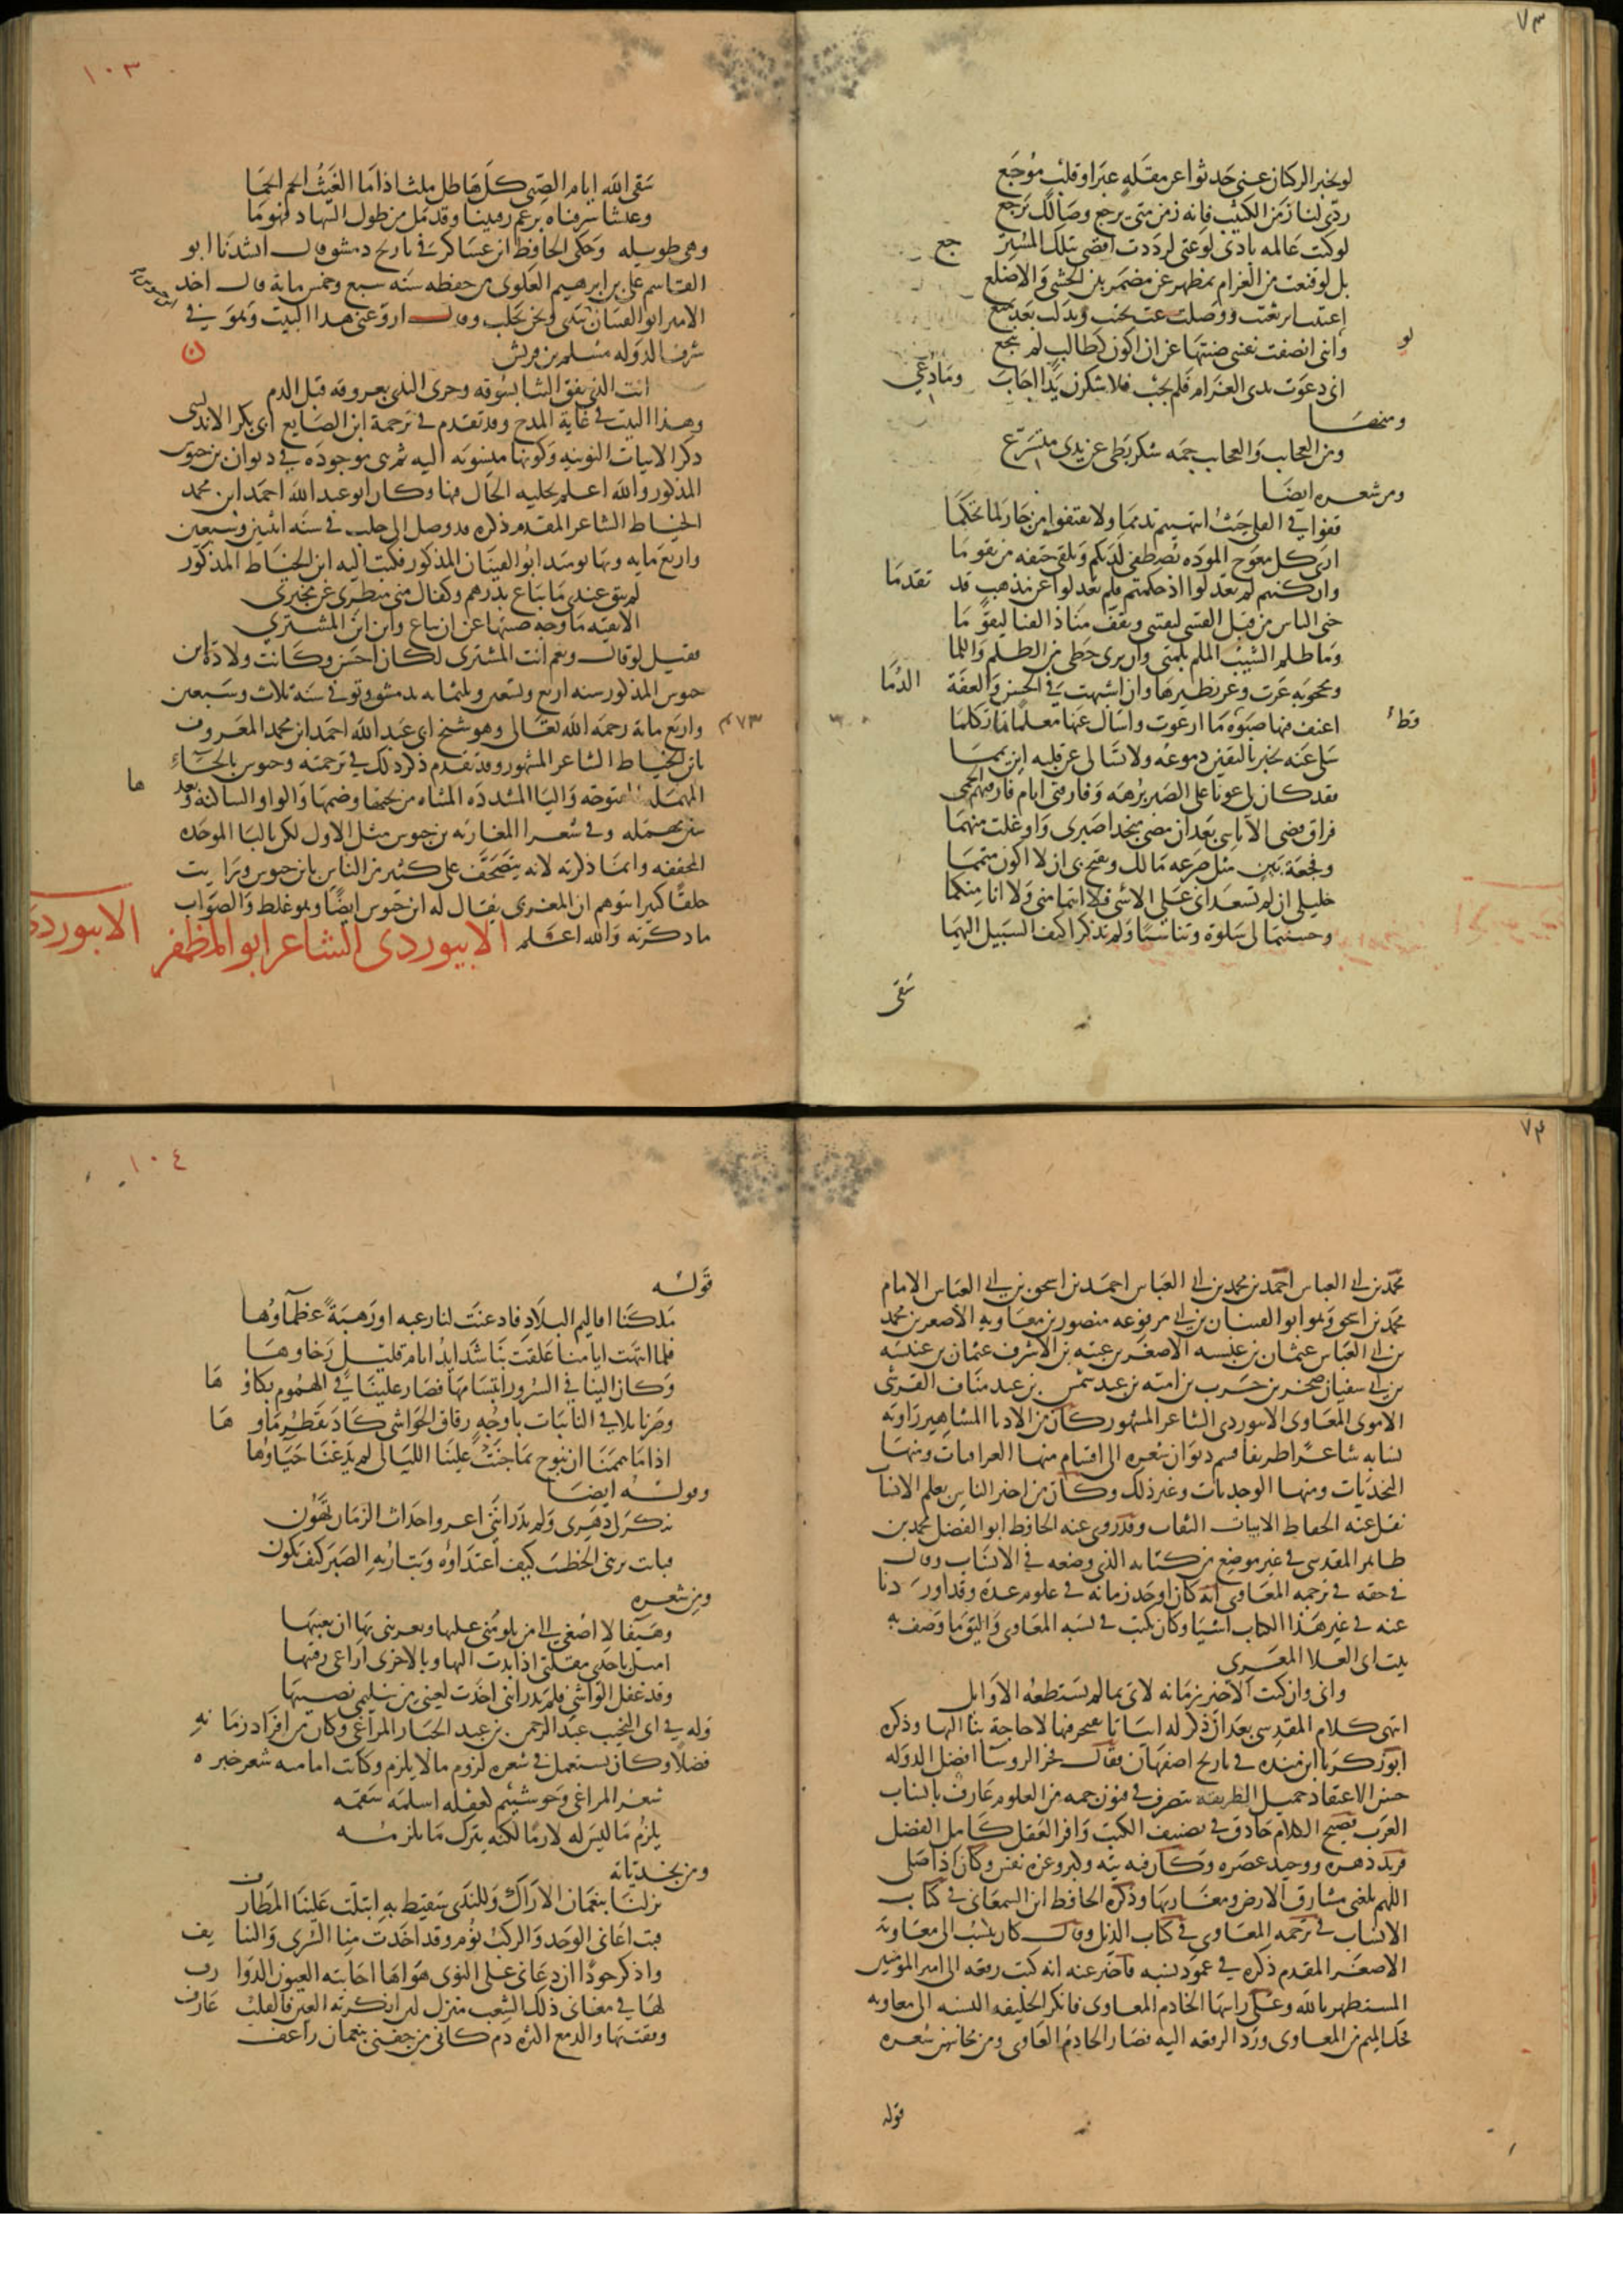 ٧٣
لو يخبر الركبان عني حدثوا عن مقلة عبرا وقلب موجع
ردي لنا زمن الكثيب فانه زمن متى يرجع وصالك يرجع
لو كنت عالمه بادنى لوعتي لرددت اقصى نيلك المسترجع
بل لو قنعت من الغرام بمظهر عن مضمر بين الحشى والاضلع
اعتبت اثر تعتب ووصلت غب تجنب وبذلت بعد تمنع
ولو انني انصفت نفسي صنتها عن ان اكون كطالب لم ينجع
اني دعوت ندى الكرام فلم يجب فلاشكرن ندا اجاب وما دعي
ومنها
ومن العجايب والعجايب جمه شكر بطي عن ندى متسرع
ومن شعره ايضا
قفوا في القلى حيث انتهيتم تذمما ولا تقتفوا من جار لما تحكما
ارى كل معوج الموده يصطفى لديكم ويلقى حتفه من تقوما
وان كنتم لم تعدلوا اذ حكمتم فلم تعدلوا عن مذهب قد تقدما
حنى الناس من قبل القسي لتقتنى وثقف مناذ القنا ليقوما
وما ظلم الشيب الملم بلمتي وان بزني حظي من الظلم واللما
ومحجوبة عزت وعز نظيرها وان اشبهت في الحسن والعفة الدما
اعنف فيها صبوة قط ما ارعوت واسال عنها معلما ما تكلما
سلي عنه تخبر باليقين دموعه ولا تسالي عن قلبه اين يمما
فقد كان لي عونا على الصبر برهه وفارقني ايام فارقتم الحمى
فراق قضى الا تاسي بعد ان مضى منجدا صبري واوغلت متهما
وفجعة بين مثل صرعه مالك ويقبح بي ان لا اكون متمما
خليلي ان لم تسعداني على الاسى فلا انتما مني ولا انا منكما
وحسنتما لي سلوة وتناسيا ولم تذكرا كيف السبيل اليهما
سقى
١٠٣
سقى الله ايام الصبي كل هاطل ملث اذا ما الغيث انجم انجما
وعيشا سرقناه برغم رقيبنا وقد مل من طول السهاد فهوما
وهي طويله وحكى الحافظ ابن عساكر في تاريخ دمشق قال انشدنا ابو
القاسم علي بن ابرهيم العلوي من حفظه سنة سبع وخمس مائة قال اخذ
الامير ابو الفتيان بيدي ونحن بحلب وقال ارو عني هذا البيت وهو في
شرف الدوله مسلم بن قريش
انت الذي نفق الثنا بسوقه وجرى الندى بعروقه قبل الدم
وهذا البيت في غاية المدح وقد تقدم في ترجمة ابن الصايغ ابي بكر الاندلسي
ذكر الابيات النونيه وكونها منسوبه اليه ثم هي موجوده في ديوان بن حيوس
المذكور والله اعلم بجليه الحال فيها وكان ابو عبد الله احمد ابن محمد
الخياط الشاعر المقدم ذكره قد وصل الى حلب في سنه اثنين وسبعين
واربع مايه وبها يومئذ ابو الفتيان المذكور فكتب اليه ابن الخياط المذكور
لم يبق عندي ما يباع بدرهم وكفاك مني منظري عن مخبري
الا بقيه ما وجه صنتها عن ان تباع واين اين المشتري
فقيل لو قال ونعم انت المشتري لكان احسن وكانت ولادة ابن
حيوس المذكور سنه اربع وتسعين وثلثمايه بدمشق وتوفي في سنة ثلاث وسبعين
واربع ماية رحمه الله تعالى وهو شيخ ابي عبد الله احمد ابن محمد المعروف
٤٧٣
بابن الخياط الشاعر المشهور وقد تقدم ذكر ذلك في ترجمته وحيوس بالحاء
المهمله المفتوحه واليا المشدده المثناه من تحتها وضمها والواو الساكنه وبعدها
سين مهمله وفي شعرا المغاربه بن حبوس مثل الاول لكن بالبا الموحده
المخففه وانما ذكرته لانه يتصحف على كثير من الناس بابن حيوس ورايت
خلقا كثيرا يتوهم ان المغربي يقال له ابن حيوس ايضا وهو غلط والصواب
ما ذكرته والله اعلم الابيوردي الشاعر ابو المظفر
الابيوردي
٧٤
محمد بن ابي العباس احمد بن محمد بن ابي العباس احمد بن اسحق بن ابي العباس الامام
محمد بن اسحق وهو ابو الفتيان بن ابي مرفوعه منصور بن معاويه الاصغر بن محمد
بن ابي العباس عثمان بن عنبسه الاصغر بن عتبه بن الاشرف عثمان بن عنبسه
بن ابي سفيان صخر بن حرب بن اميه بن عبد شمس بن عبد مناف القرشي
الاموي المعاوي الابيوردي الشاعر المشهور كان من الادبا المشاهير راويه
نسابه شاعرا ظريفا قسم ديوان شعره الى اقسام منها العراقيات ومنها
النجديات ومنها الوجديات وغير ذلك وكان من اخبر الناس بعلم الانساب
نقل عنه الحفاظ الاثبات الثقات وقد روى عنه الحافظ ابو الفضل محمد بن
طاهر المقدسي في غير موضع من كتابه الذي وضعه في الانساب وقال
في حقه في ترجمه المعاوي انه كان اوحد زمانه في علوم عدة وقد اوردنا
عنه في غير هذا الكتاب اشيا وكان يكتب في نسبه المعاوي واليق ما وصف به
بيت ابي العلا المعري
واني وان كنت الاخير زمانه لات بما لم تستطعه الاوايل
انتهى كلام المقدسي بعد ان ذكر له ابياتا فيها لا حاجة بنا اليها وذكره
ابو زكريا ابن منده في تاريخ اصفهان فقال فخر الروسا افضل الدوله
حسن الاعتقاد جميل الطريقه متصرف في فنون جمه من العلوم عارف بانساب
العرب فصيح الكلام حاذق في تصنيف الكتب وافر العقل كامل الفضل
فريد دهره ووحيد عصره وكان فيه تيه وكبر وعزه نفس وكان اذا صلى
اللهم ملكني مشارق الارض ومغاربها وذكره الحافظ ابن السمعاني في كتاب
الانساب في ترجمه المعاوي في كتاب الذيل وقال كان ينسب الى معاويه
الاصغر المقدم ذكره في عمود نسبه فاخبر عنه انه كتب رقعه الى امير المومنين
المستظهر بالله وعلى راسها الخادم المعاوي فانكر الخليفه النسبه الى معاويه
فحك الميم من المعاوي ورد الرقعه اليه فصار الخادم العاوي ومن محاسن شعره
قوله
١٠٤
قوله
ملكنا اقاليم البلاد فاذعنت لنا رغبه او رهبة عظماوها
فلما انتهت ايامنا علقت بنا شدايد ايام قليل رخاوها
وكان الينا في السرور ابتسامها فصار علينا في الهموم بكاوها
وصرنا نلاقي النائبات باوجه رقاق الحواشي كاد يقطر ماوها
اذا ما هممنا ان نبوح بما جنت علينا الليالي لم يدعنا حياوها
وقوله ايضا
تنكر لي دهري ولم يدر انني اعز واحداث الزمان تهون
فبات يريني الخطب كيف اعتداوه وبت اريه الصبر كيف يكون
ومن شعره
وهيفا لا اصغي الى من يلومني عليها ويغريني بها ان يعيبها
اميل باحدى مقلتي اذا بدت اليها وبالاخرى اراعي رقيبها
وقد غفل الواشي فلم يدر انني اخذت لعيني من سليمى نصيبها
وله في ابي النجيب عبد الرحمن بن عبد الجبار المراغي وكان من افراد زمانه
فضلا وكان يستعمل في شعره لزوم ما لا يلزم وكانت امامه شعر خبره
شعر المراغي وحوشيتم كعقله اسلمه سقمه
يلزم ما ليس له لازما لكنه يترك ما يلزمه
ومن نجدياته
نزلنا بنعمان الاراك وللندى سقيط به ابتلت علينا المطارف
فبت اعاني الوجد والركب نوم وقد اخذت منا السرى والتنايف
واذكر خودا ان دعاني على النوى هواها اجابته العيون الذوارف
لها في مغاني ذلك الشعب منزل لين انكرته العين فالقلب عارف
وقفت بها والدمع اكثره دم كاني من جفني بنعمان راعف